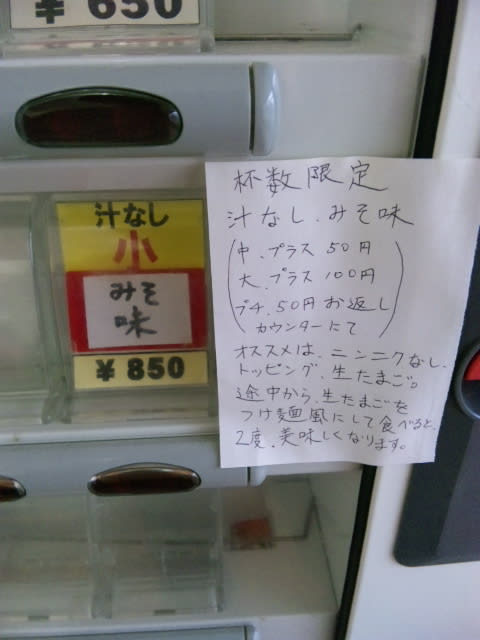 ¥ 650
汁なし
小
みそ
味
¥ 850
杯数限定
汁なし、みそ味
(中、プラス 50円
大、プラス 100円
プチ、50円お返し
カウンターにて)
オススメは、ニンニクなし、
トッピング、生たまご。
途中から、生たまごを
つけ麺風にして食べると、
2度、美味しくなります。